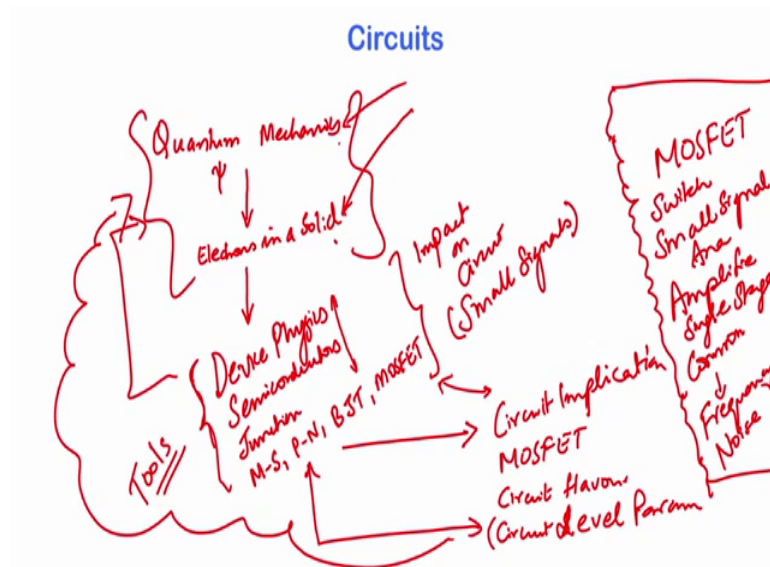 Circuits
Quantum Mechanics
ψ
Electrons in a Solid
Device Physics
Semiconductors
Junction
M-S, P-N, BJT, MOSFET
Tools
Impact
on
Circuit
(Small Signals)
Circuit Implication
MOSFET
Circuit flavour
(Circuit Level Param
MOSFET
Switch
Small Signal
Ana
Amplifie
Single Stage
Common
Frequen
Noise